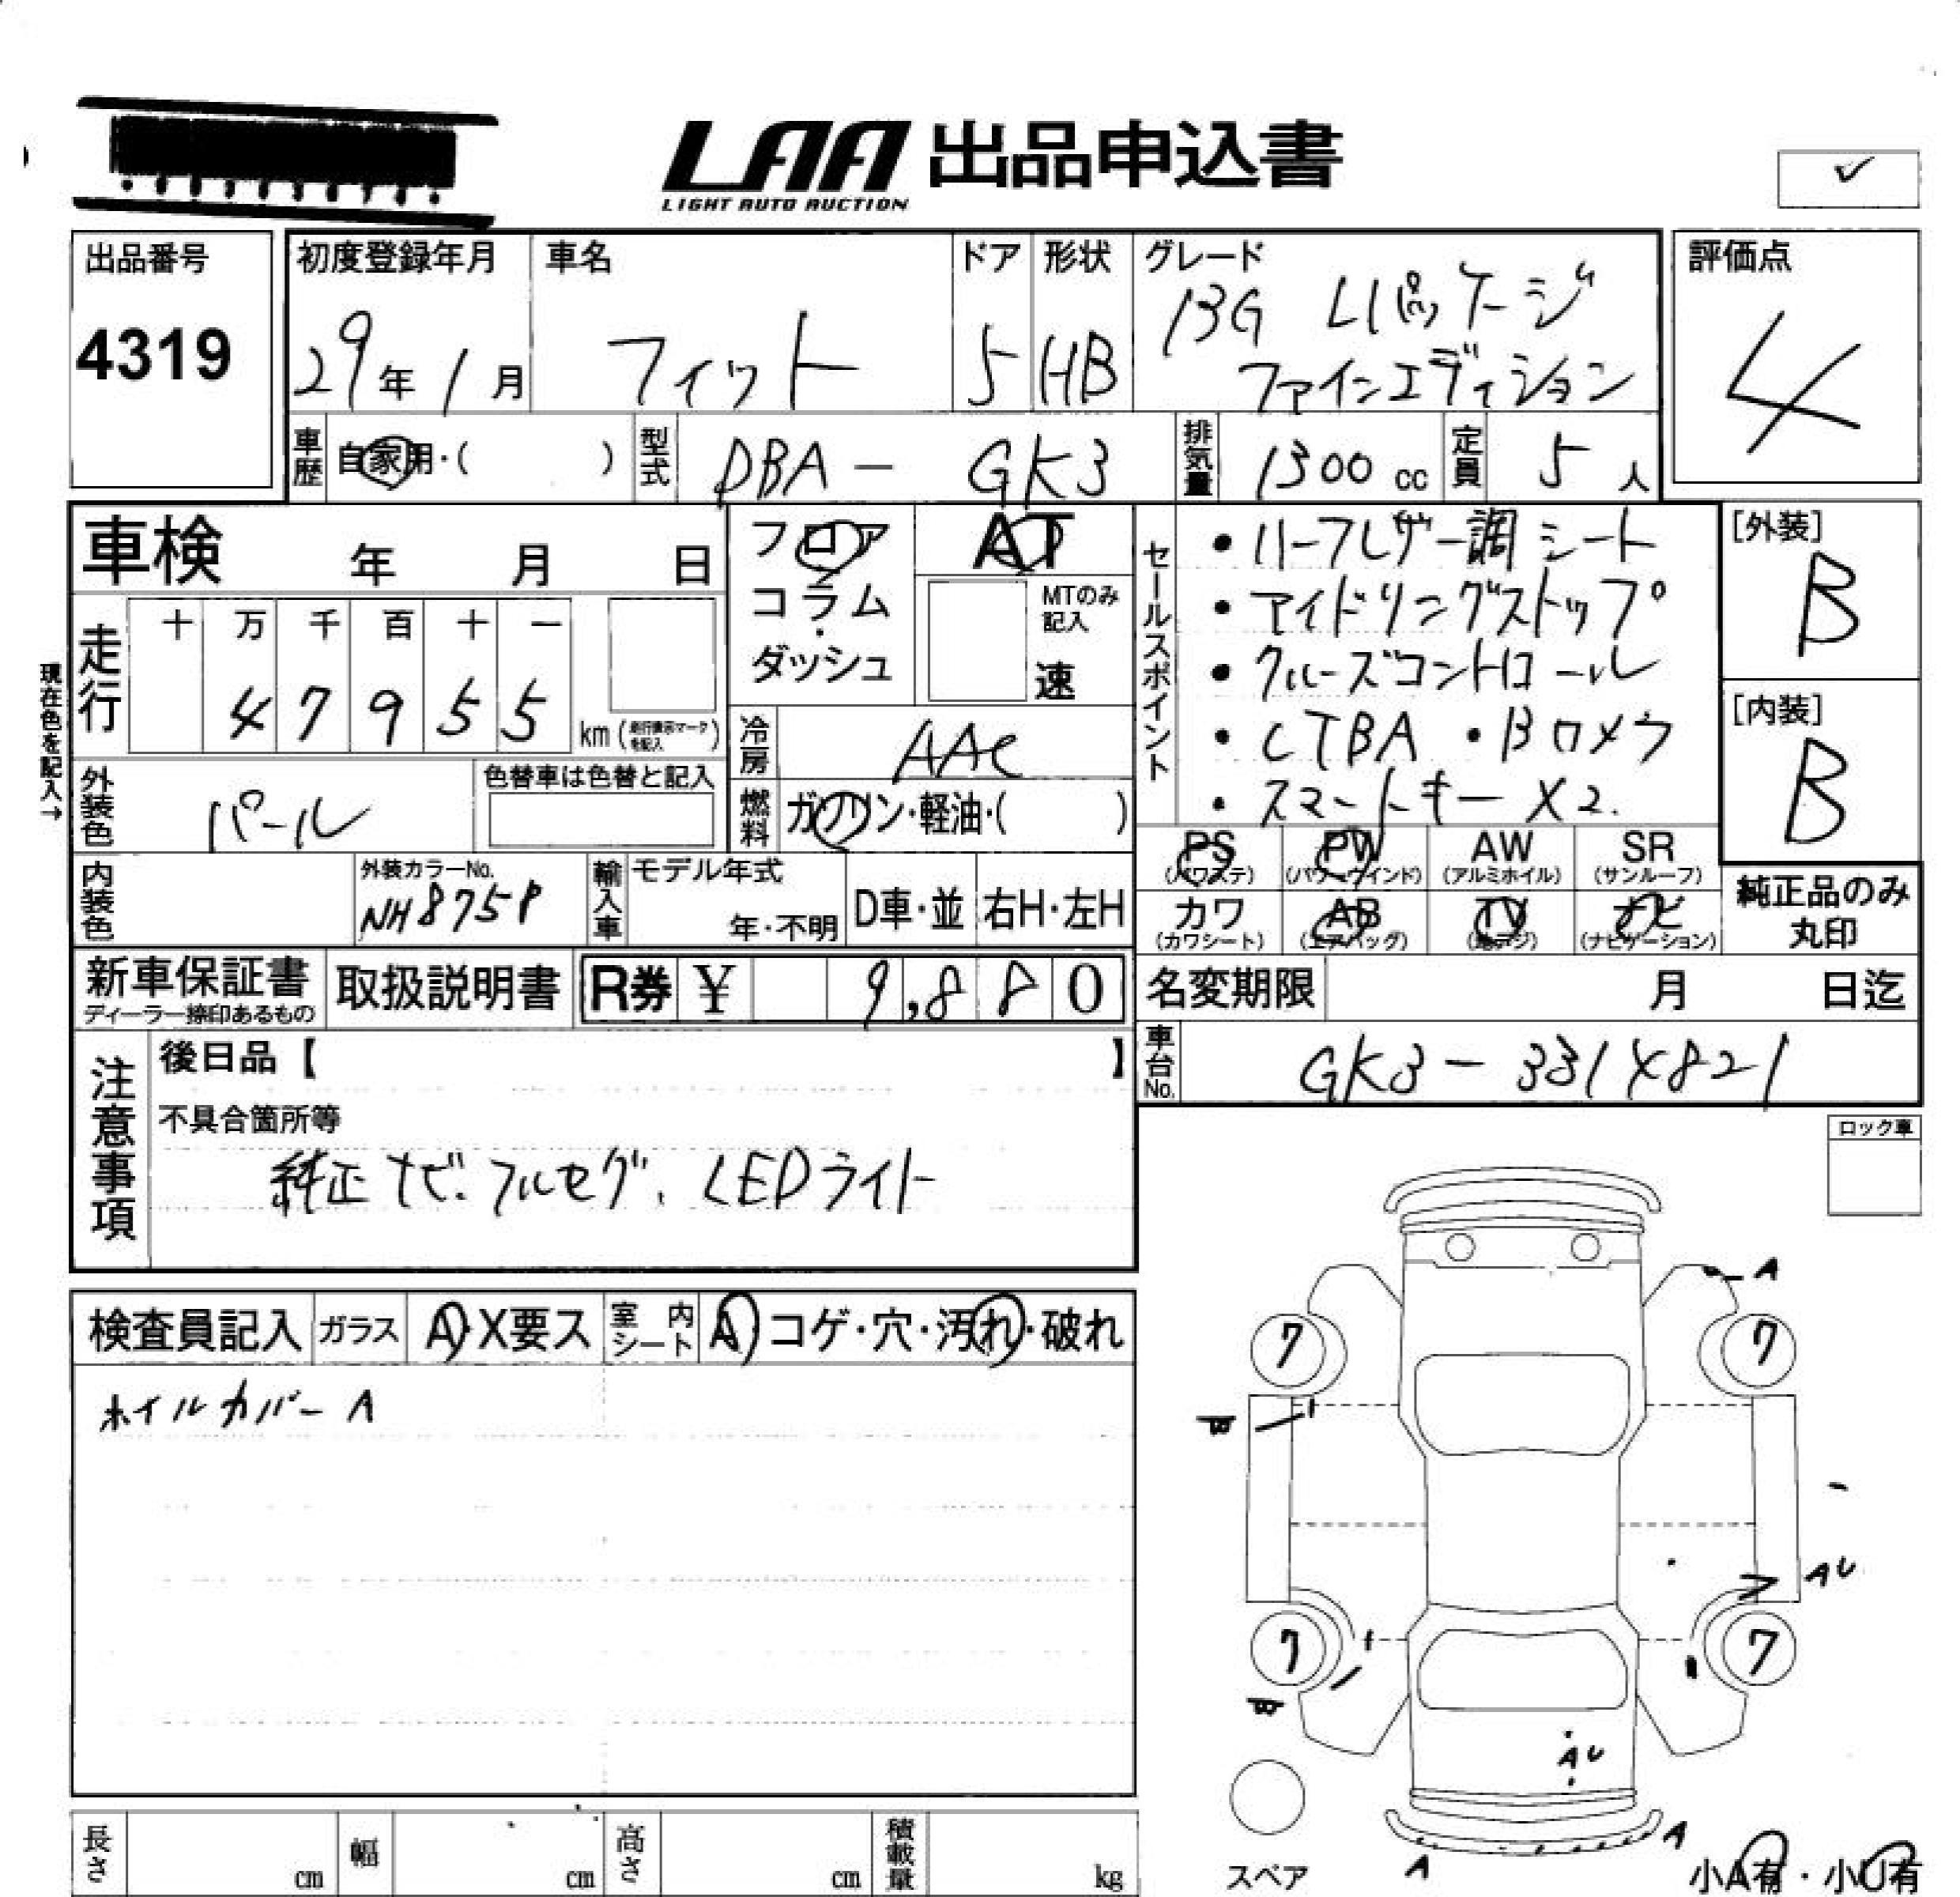 LAA 出品申込書
LIGHT AUTO AUCTION
出品番号
4319
初度登録年月
29年1月
車名
フィット
ドア
5
形状
HB
グレード
13G Lパッケージ
ファインエディション
評価点
4
車歴
自家用・( )
型式
DBA - GK3
排気量
1300 cc
定員
5 人
車検 年 月 日
フロア
コラム
・
ダッシュ
AT
MTのみ
記入
速
セールスポイント
・ハーフレザー調シート
・アイドリングストップ
・クルーズコントロール
・CTBA ・Bカメラ
・スマートキー×2.
[外装]
B
[内装]
B
現在色を記入→
走行
十 万 千 百 十 一
4 7 9 5 5
km(走行表示マークを記入)
冷房
AAC
外装色
パール
色替車は色替と記入
燃料
ガソリン・軽油・( )
PS
(パワステ)
PW
(パワーウインド)
AW
(アルミホイル)
SR
(サンルーフ)
カワ
(カワシート)
AB
(エアバッグ)
TV
(地デジ)
ナビ
(ナビゲーション)
純正品のみ
丸印
内装色
外装カラーNo.
NH875P
輸入車
モデル年式
年・不明
D車・並
右H・左H
新車保証書
ディーラー捺印あるもの
取扱説明書
R券 ¥ 9,880
名変期限 月 日迄
車台No.
GK3-3314821
注意事項
後日品【 】
不具合箇所等
純正ナビ.フルセグ.LEDライト
ロック車
検査員記入
ガラス
A・X要ス
室内シート
A・コゲ・穴・汚れ・破れ
ホイルカバーA
A
7
7
W
AU
7
7
W
AU
A
A
スペア
小A有・小U有
長さ cm
幅 cm
高さ cm
積載量 kg